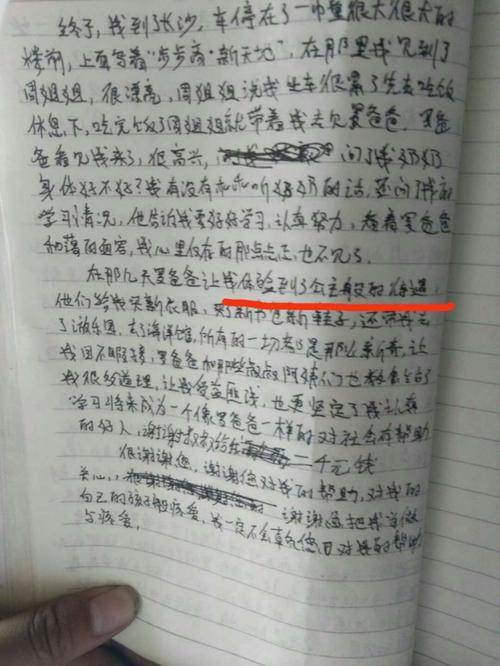 终于，我到了长沙，车停在了一巾望很大很大的
楼前，上面写着“步步高·新天地”，在那里我见到了
周姐姐，很漂亮，周姐姐说我坐车很累了先去吃饭
休息下，吃完饭了周姐姐就带着我去见罗爸爸，罗爸
爸看见我来了，很高兴，问了我奶奶
身体好不好？我有没有乖乖听奶奶的话，还问了我的
学习情况，他告诉我要好好学习，认真努力，看着罗爸爸
和蔼的面容，我心里仅存的那点点忐忑，也不见了。
在那几天罗爸爸让我体验到了公主般的待遇，
他们给我买新衣服，买了新书包新鞋子，还带我去
了游乐园，去了海洋馆，所有的一切都是那么新奇，让
我目不暇接，罗爸爸和那些叔叔阿姨们也教会了
我很多道理，让我受益匪浅，也更坚定了我认真
学习将来成为一个像罗爸爸一样的对社会有帮助
的好人，谢谢叔叔给的二千元钱
很谢谢您，谢谢您对我的帮助，对我的
关心，谢谢您把我当做
自己的孩子般疼爱，我一定不会辜负您日对我的帮助
与疼爱，